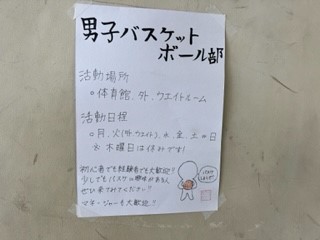 男子バスケット
ボール部
活動場所
○体育館、外、ウエイトルーム
活動日程
○月、火(外、ウエイト)、水、金、土or日
※木曜日は休みです!
初心者でも経験者でも大歓迎!!
少しでもバスケに興味がある人
ぜひ来てみてください!!
マネージャーも大歓迎!!
バスケ
しようぜ!